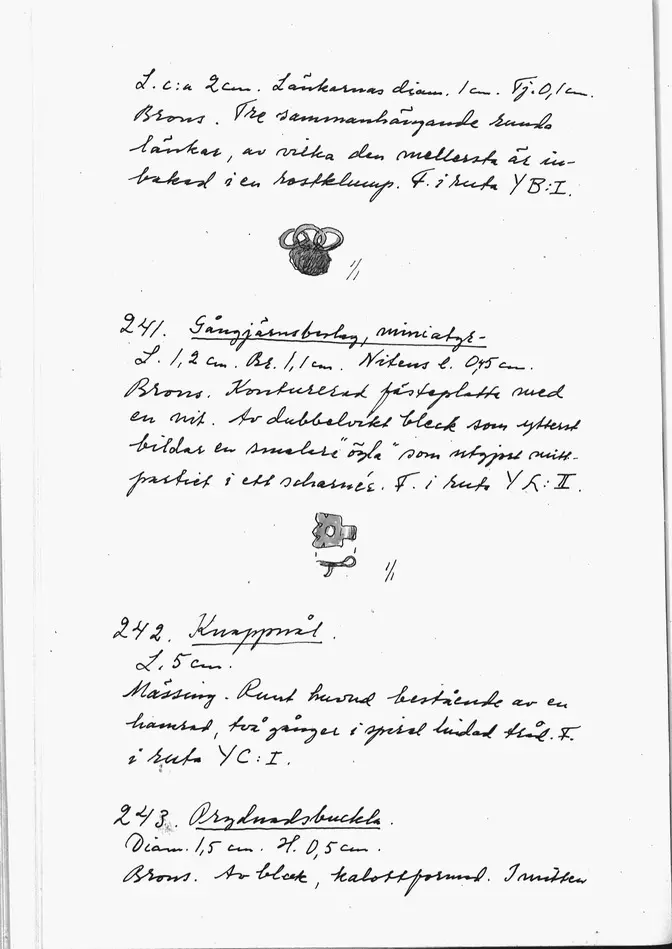 L. c:a 2 cm. Länkarnas diam. 1 cm. Tj. 0,1 cm.
Brons. Tre sammanhängande runda
länkar, av vilka den mellersta är in-
bakad i en rostklump. F. i ruta YB:I.
1/1
241. Gångjärnsbeslag, miniatyr-
L. 1,2 cm. Br. 1,1 cm. Nitens l. 0,45 cm.
Brons. Konturerad fästeplatta med
en nit. Av dubbelvikt bleck som ytterst
bildar en smalare "ögla" som utgjort mitt-
partiet i ett scharnér. F. i ruta Y:II.
1/1
242. Knappnål.
L. 5 cm.
Mässing. Runt huvud bestående av en
hamrad, två gånger i spiral lindad tråd. F.
i ruta YC:I.
243. Prydnadsbuckla.
Diam. 1,5 cm. H. 0,5 cm.
Brons. Av bleck, kalottformad. I mitten